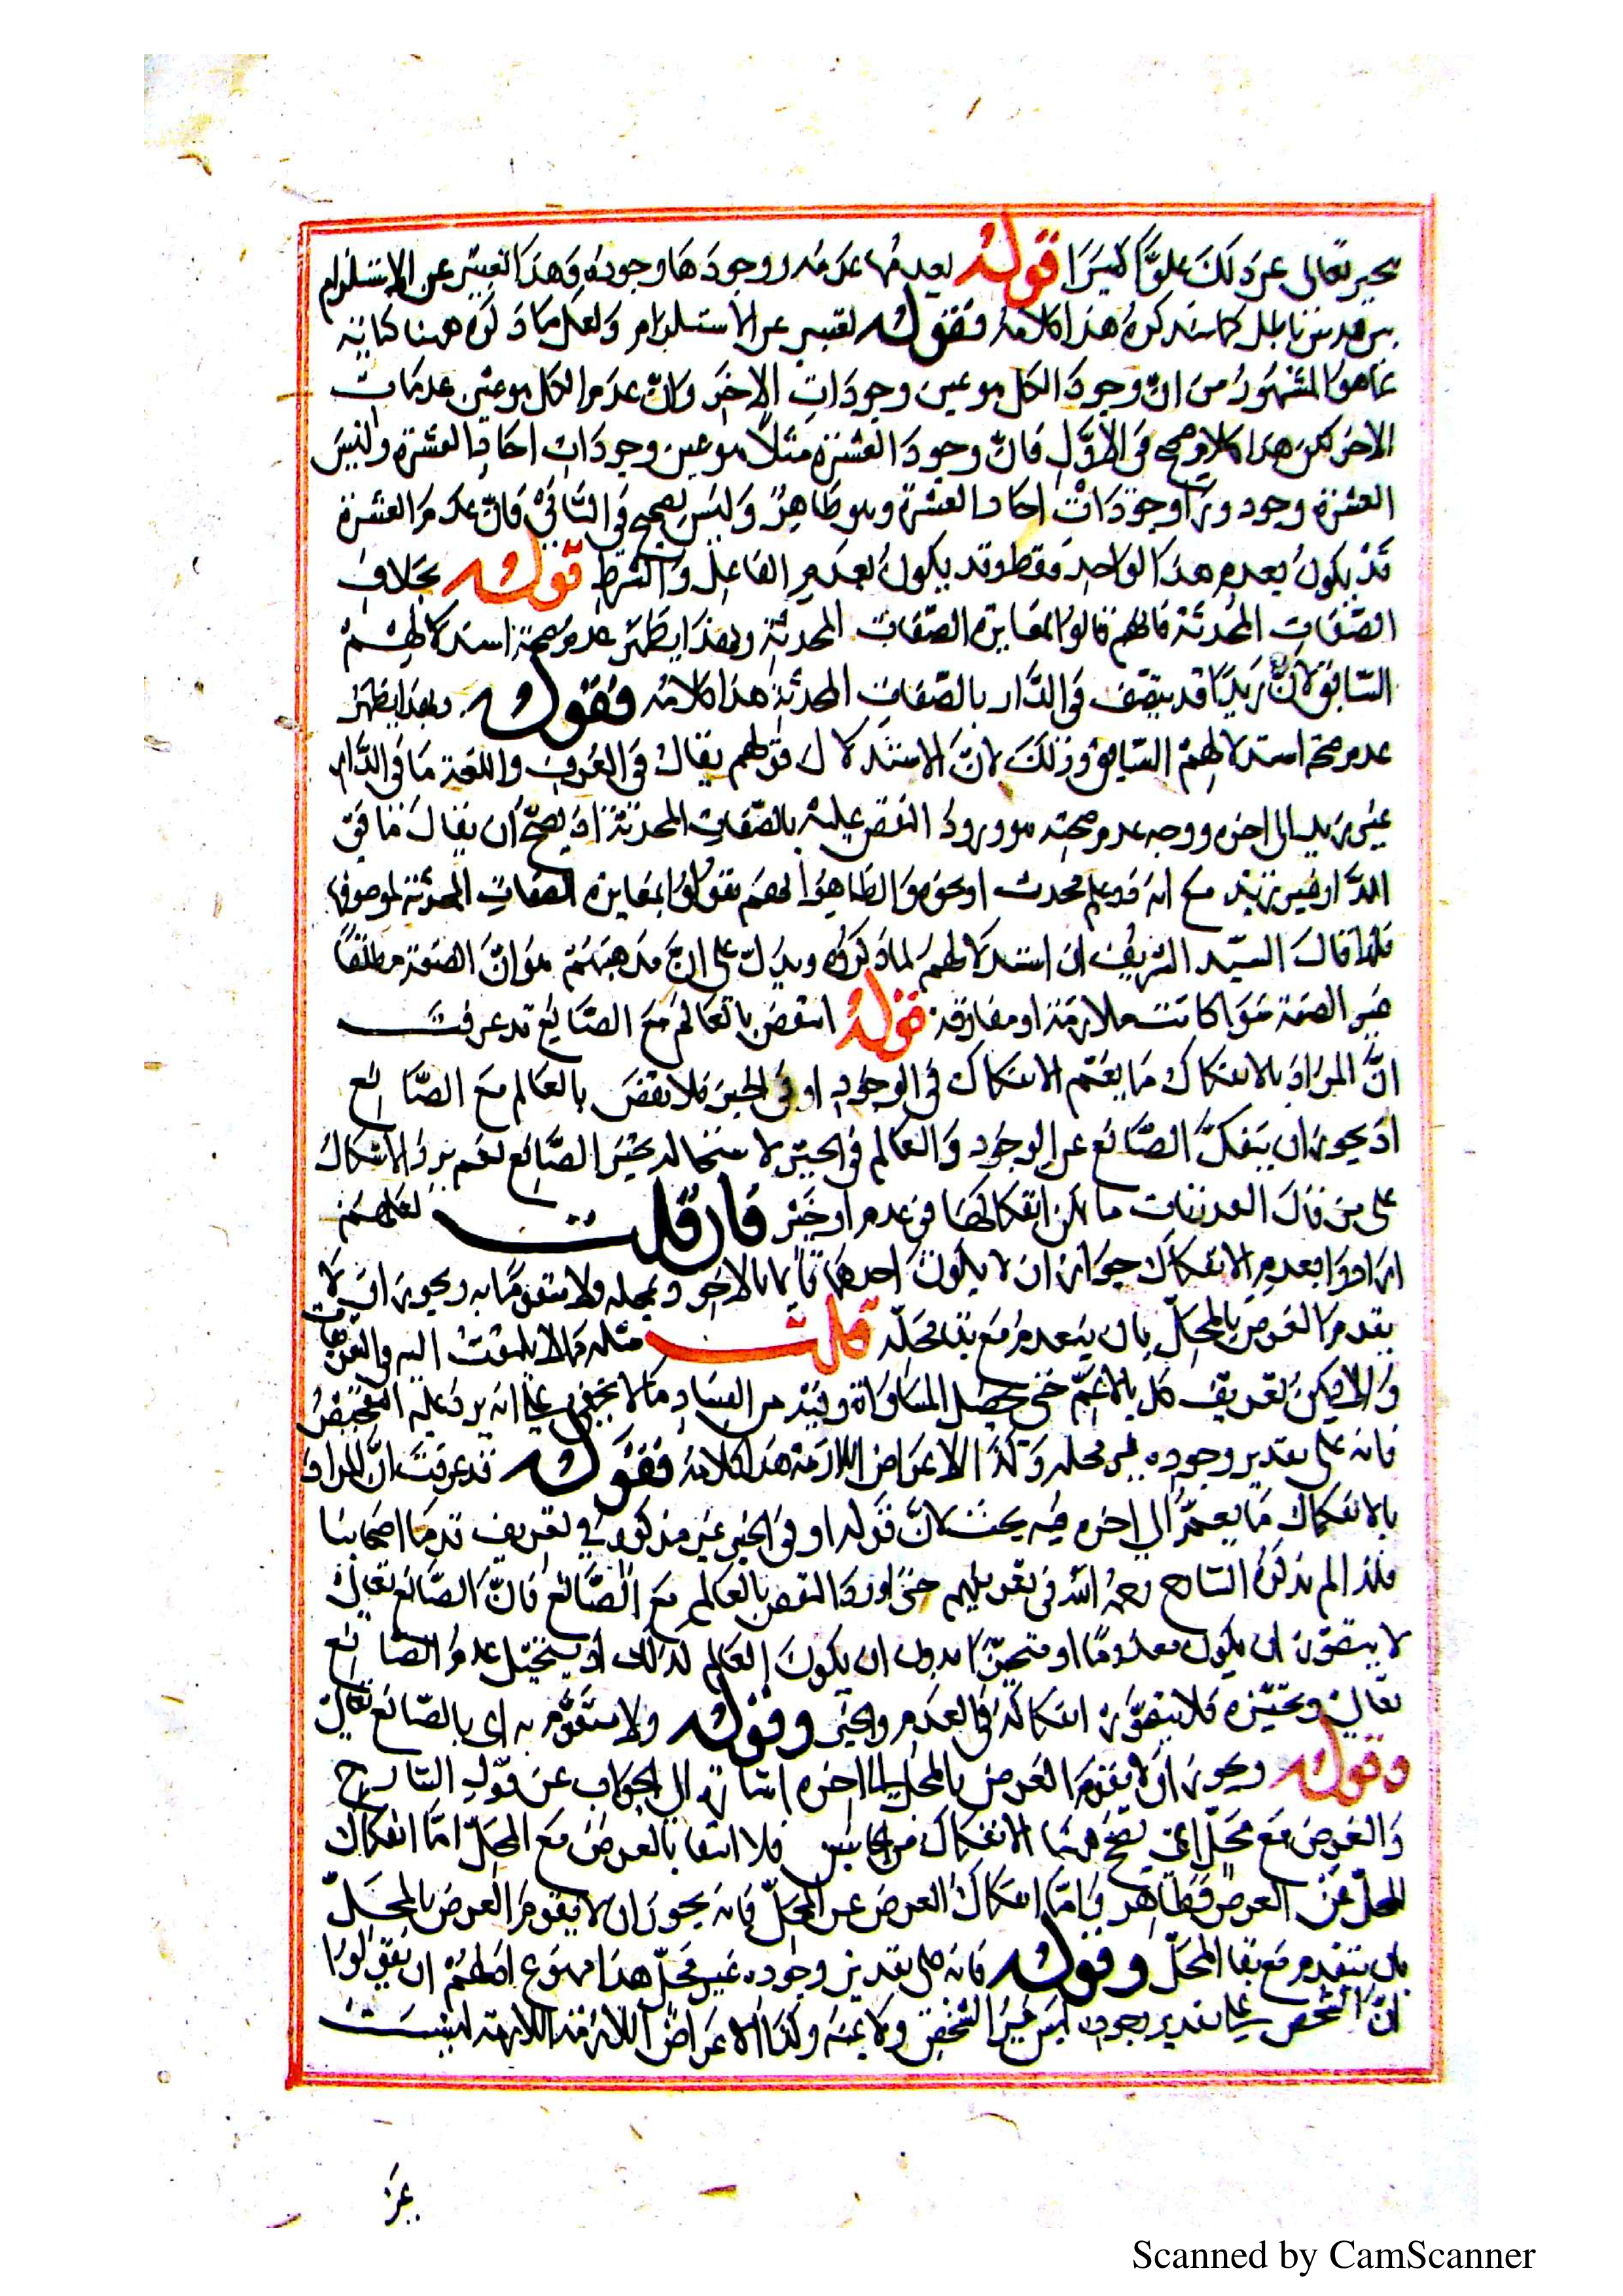 تحير تعالى عن ذلك علوًّا كبيرًا قوله بعدمها عدمه ووجودها وجوده وهذا تعبير عن الاستلزام
كما سنذكره هذا كلامه فقوله تعبير عن الاستلزام ولعل ما ذكره ههنا كناية
عما هو المشهور من ان وجود الكل هو عين وجودات الاخر وان عدم الكل هو عين عدمات
الاخر لكن هذا كلام صحيح في الاول فان وجود العشرة مثلا هو عين وجودات احاد العشرة وليس
العشرة وجود وراوجودات احاد العشرة وهو ظاهر وليس بصحيح في الثاني فان عدم العشرة
قد يكون بعدم هذا الواحد فقط وقد يكون بعدم الفاعل والشرط قوله بخلاف
الصفات المحدثة فانهم قالوا بمغايرة الصفات المحدثة وبهذا يظهر عدم صحة استدلالهم
السابق لان زيدا قد يتصف في الدار بالصفات المحدثة هذا كلامه فقوله وبهذا يظهر
عدم صحة استدلالهم السابق وذلك لان الاستدلال قولهم يقال في العرف واللغة ما في الدار
غير زيد الى اخره ووجه عدم صحته هو ورود النقض عليه بالصفات المحدثة اذ يصح ان يقال ما في
الدار غير زيد مع انه ذو علم محدث او نحوه والظاهر انهم يقولوا بمغايرة الصفات المحدثة لموصوفها
فلهذا قال السيد الشريف ان استدلالهم لما ذكروه ويدل على ان مذهبهم هو ان الصفة مطلقًا
غير الصفة سوا كانت ملازمة او مفارقة قوله انتقض بالعالم مع الصانع قد عرفت
ان المراد بالانفكاك ما يعم الانفكاك في الوجود او في الحيز فلا نقض بالعالم مع الصانع
اذ يجوز ان ينفك الصانع عن الوجود والعالم في الحيز لاستحالة تحيز الصانع نعم يرد الاشكال
على من قال الغيريات ما يمكن انفكاكهما في عدم او حيز فان قلت لعلهم
ارادوا بعدم الانفكاك جواز ان لا يكون احدهما قايما بالاخر وبمحله ولا متقوما به ويجوز ان لا
يقوم العرض بالمحل بان ينعدم مع بقا محله قلت مثله مما لا يلتفت اليه في التعريفات
والا فيمكن تعريف كل بالاعم حتى يحصل المساواة وفيه من الفساد ما لا يخفى على انه يرد عليه الشخص
فانه على تقدير وجوده غير محله وكذا الاعراض اللازمة هذا كلامه فقوله قد عرفت ان المراد
بالانفكاك ما يعم الى اخره فيه بحث لان قوله او في الحيز غير مذكور في تعريف قدما اصحابنا
فلذا لم يذكره الشارح رحمه الله في تعريفهم حتى اورد النقض بالعالم مع الصانع فان الصانع تعالى
لا يتصور ان يكون معدومًا او متحيزًا بدون ان يكون العالم لذلك اذ يستحيل عدم الصانع
تعالى وتحيزه فلا يتصور انفكاكه في العدم والحيز وقوله ولا متقوم به اى بالصانع تعالى
وقوله ويجوز ان لا يقوم العرض بالمحل الى اخره اشارة الى الجواب عن قول الشارح
والعرض مع محل اى يصح هنا الانفكاك من الجانبين فلا انتقا بالعرض مع المحل اما انفكاك
المحل عن العرض فظاهر واما انفكاك العرض عن المحل فانه يجوز ان لا يقوم العرض بالمحل
بان ينعدم مع بقا المحل وقوله فانه على تقدير وجوده غير محل هذا ممنوع اذ لهم ان يقولوا
ان الشخص على تقدير وجوده ليس غير الشخص ولا عينه وكذا الاعراض اللازمة اللازمة ليست
Scanned by CamScanner